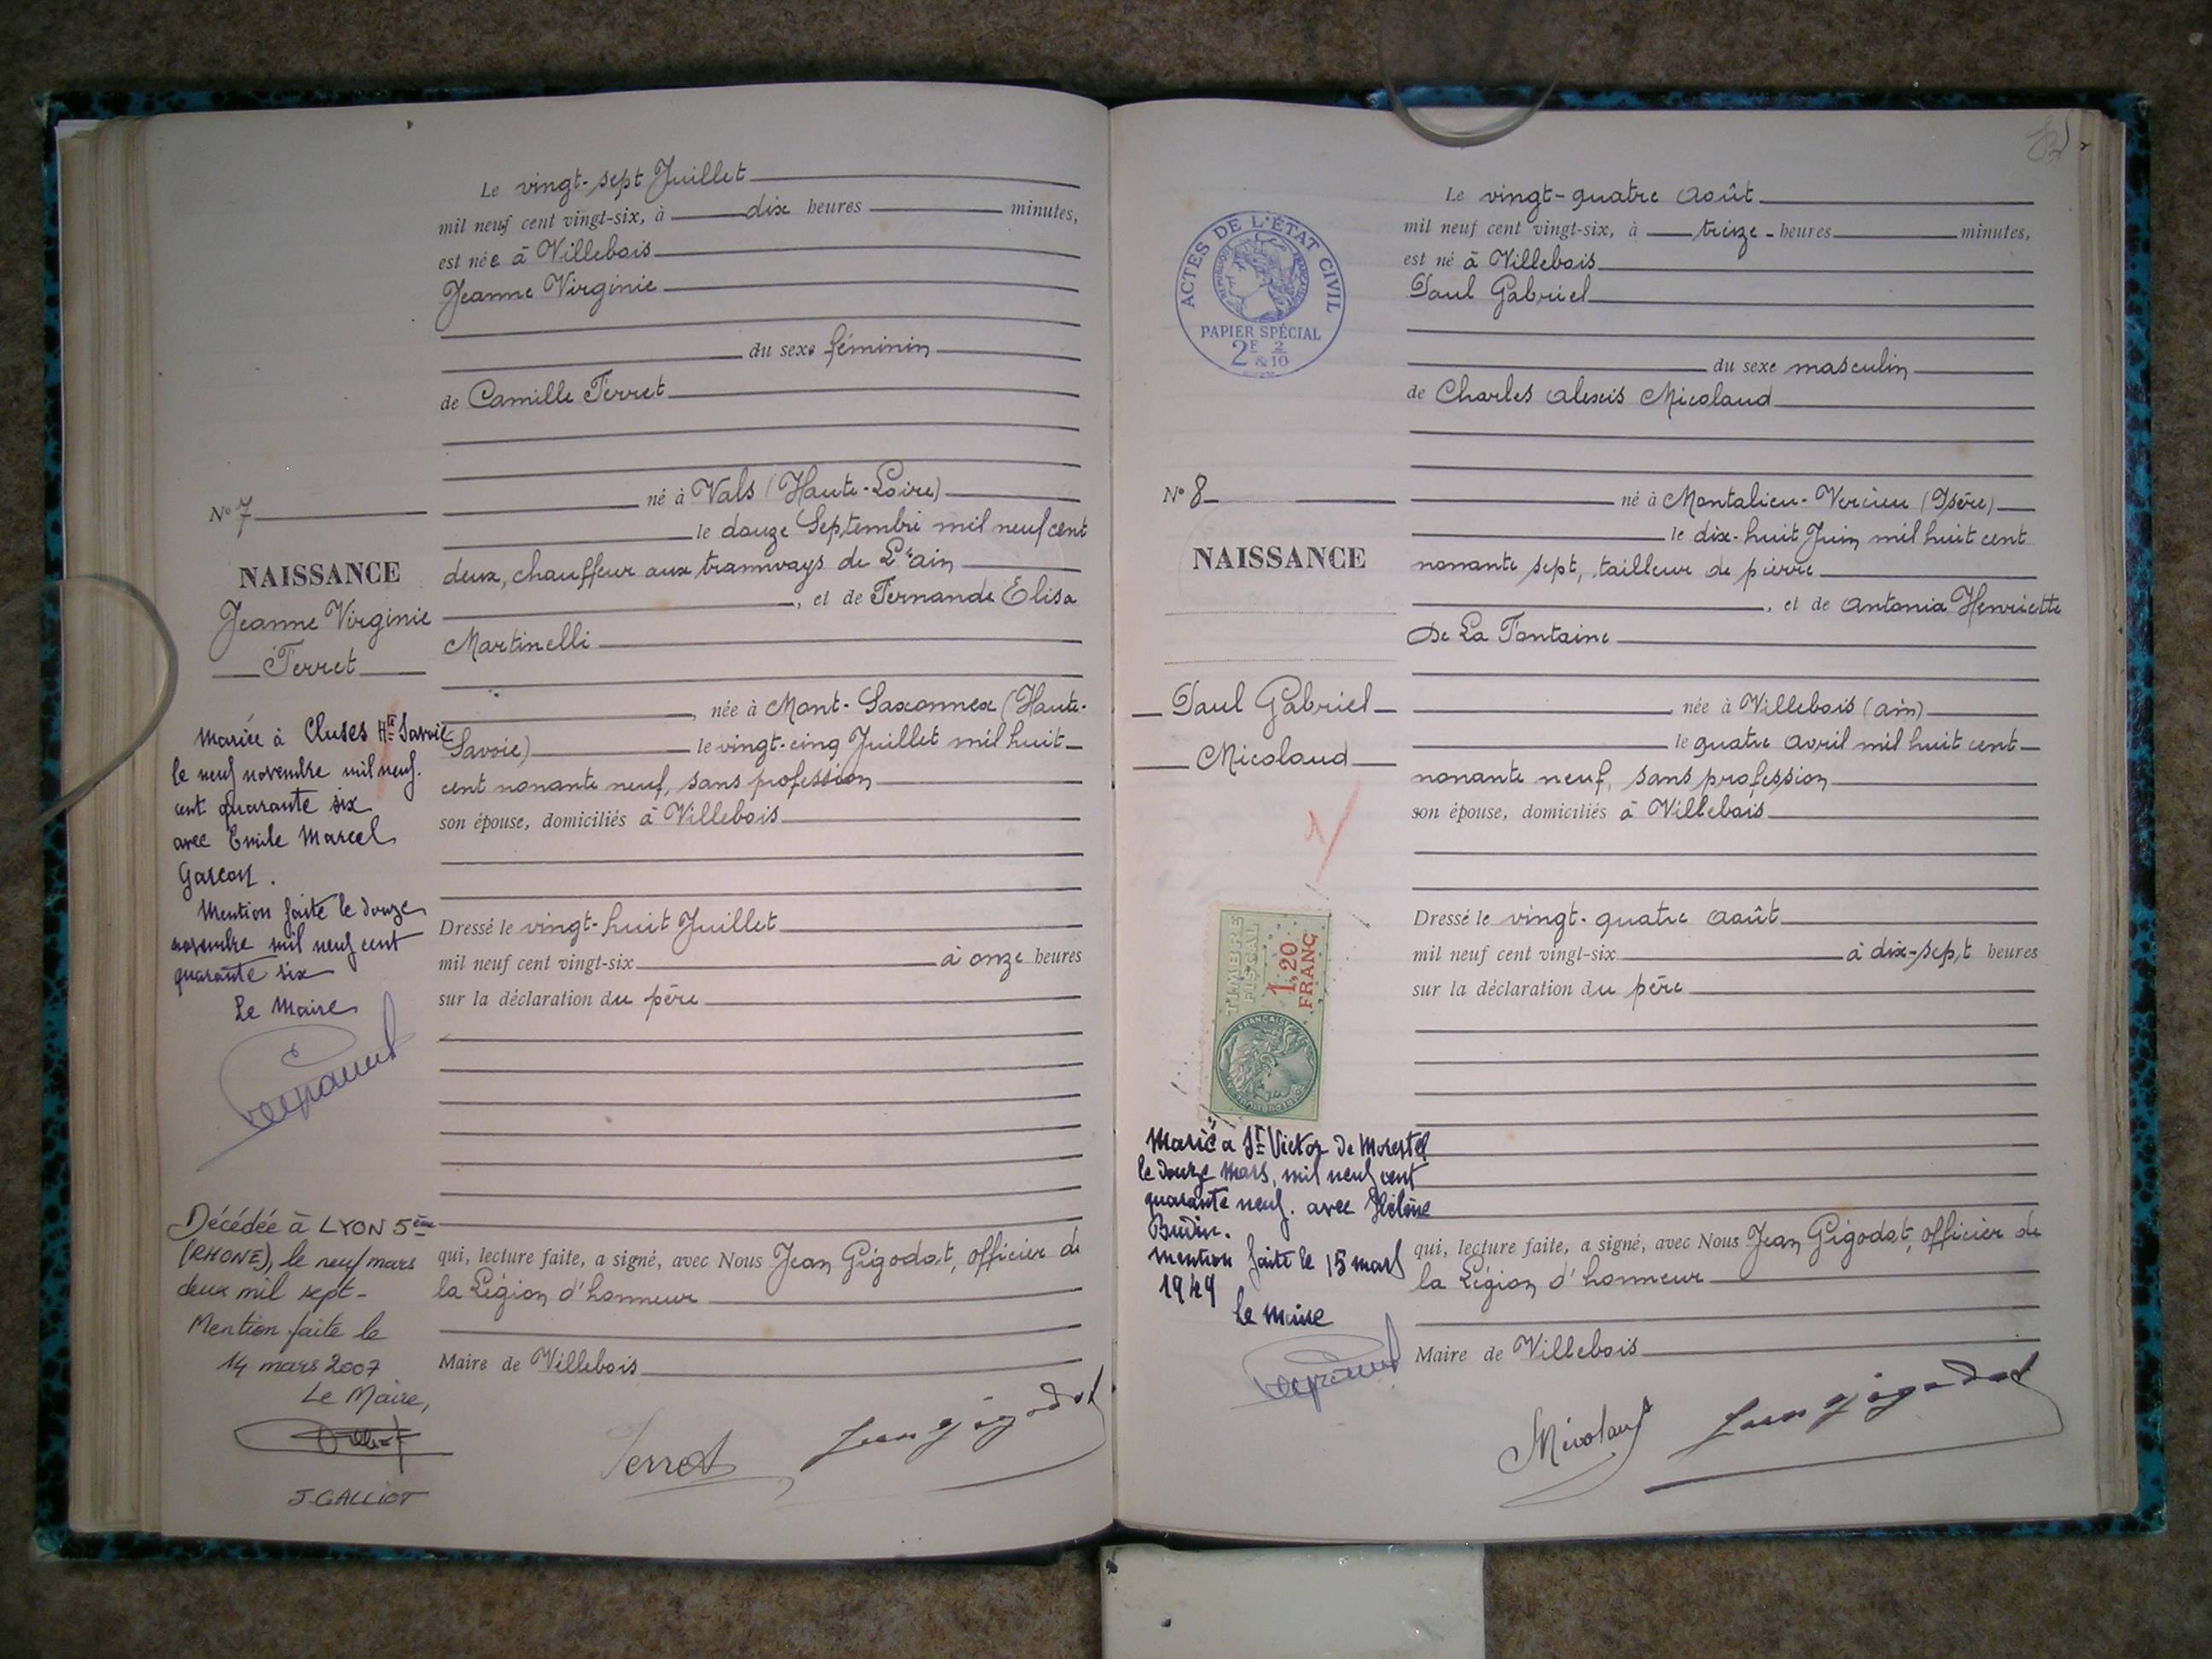 Le vingt-sept Juillet
mil neuf cent vingt-six, à dix heures minutes,
est née à Villebois
Jeanne Virginie
du sexe féminin
de Camille Ferret
né à Vals (Haute-Loire)
le douze Septembre mil neuf cent
deux, chauffeur aux tramways de L'ain
, et de Fernande Elisa
Martinelli
, née à Mont-Saxonnex (Haute-
Savoie) le vingt-cinq Juillet mil huit
cent nonante neuf, sans profession
son épouse, domiciliés à Villebois
Dressé le vingt-huit Juillet
mil neuf cent vingt-six à onze heures
sur la déclaration du père
qui, lecture faite, a signé, avec Nous Jean Gigodot, officier de
la Légion d'honneur
Maire de Villebois
Ferret Jean Gigodot
N° 7
NAISSANCE
Jeanne Virginie
Ferret
Mariée à Cluses Hte Savoie
le neuf novembre mil neuf
cent quarante six
avec Emile Marcel
Garcon.
Mention faite le douze
novembre mil neuf cent
quarante six
Le Maire
Décédée à LYON 5ème
(RHONE), le neuf mars
deux mil sept-
Mention faite le
14 mars 2007
Le Maire,
J. GALLIOT
Le vingt-quatre Août
mil neuf cent vingt-six, à treize heures minutes,
est né à Villebois
Paul Gabriel
du sexe masculin
de Charles Alexis Micolaud
né à Montalieu-Vercieu (Isère)
le dix-huit Juin mil huit cent
nonante sept, tailleur de pierre
, et de Antonia Henriette
De La Fontaine
, née à Villebois (Ain)
le quatre Avril mil huit cent
nonante neuf, sans profession
son épouse, domiciliés à Villebois
Dressé le vingt-quatre Août
mil neuf cent vingt-six à dix-sept heures
sur la déclaration du père
qui, lecture faite, a signé, avec Nous Jean Gigodot, officier de
la Légion d'honneur
Maire de Villebois
Micolaud Jean Gigodot
ACTES DE L'ÉTAT CIVIL
RÉPUBLIQUE FRANÇAISE
PAPIER SPÉCIAL
2F & 2/10
N° 8
NAISSANCE
Paul Gabriel
Micolaud
TIMBRE
FISCAL
1,20
FRANC
Marié à St Victor de Morestel
le douze mars, mil neuf cent
quarante neuf. avec Hélène
Budin.
Mention faite le 15 mars
1949
Le Maire